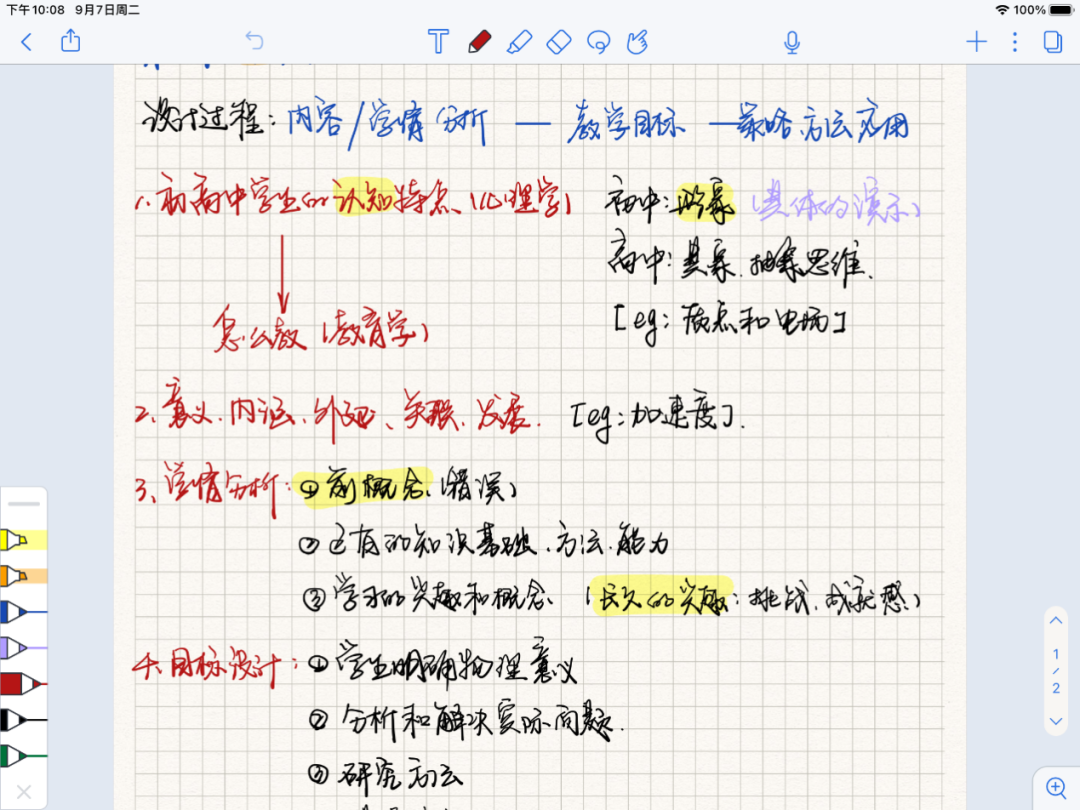 下午10:08 9月7日周二
100%
设计过程：内容/学情分析 — 教学目标 — 策略、方法应用
1、初高中学生的认知特点、(心理学) 初中：形象 (具体的演示)
高中：具象、抽象思维.
怎么教 (教育学) [eg：质点和电场]
2、意义、内涵、外延、关联、发展. [eg：加速度].
3、学情分析：①前概念、(错误)
②已有的知识基础、方法、能力
③学习的兴趣和概念、(长久的兴趣：挑战、成就感)
4、目标设计：①学生明确物理意义
②分析和解决实际问题.
③研究方法
1
/
2